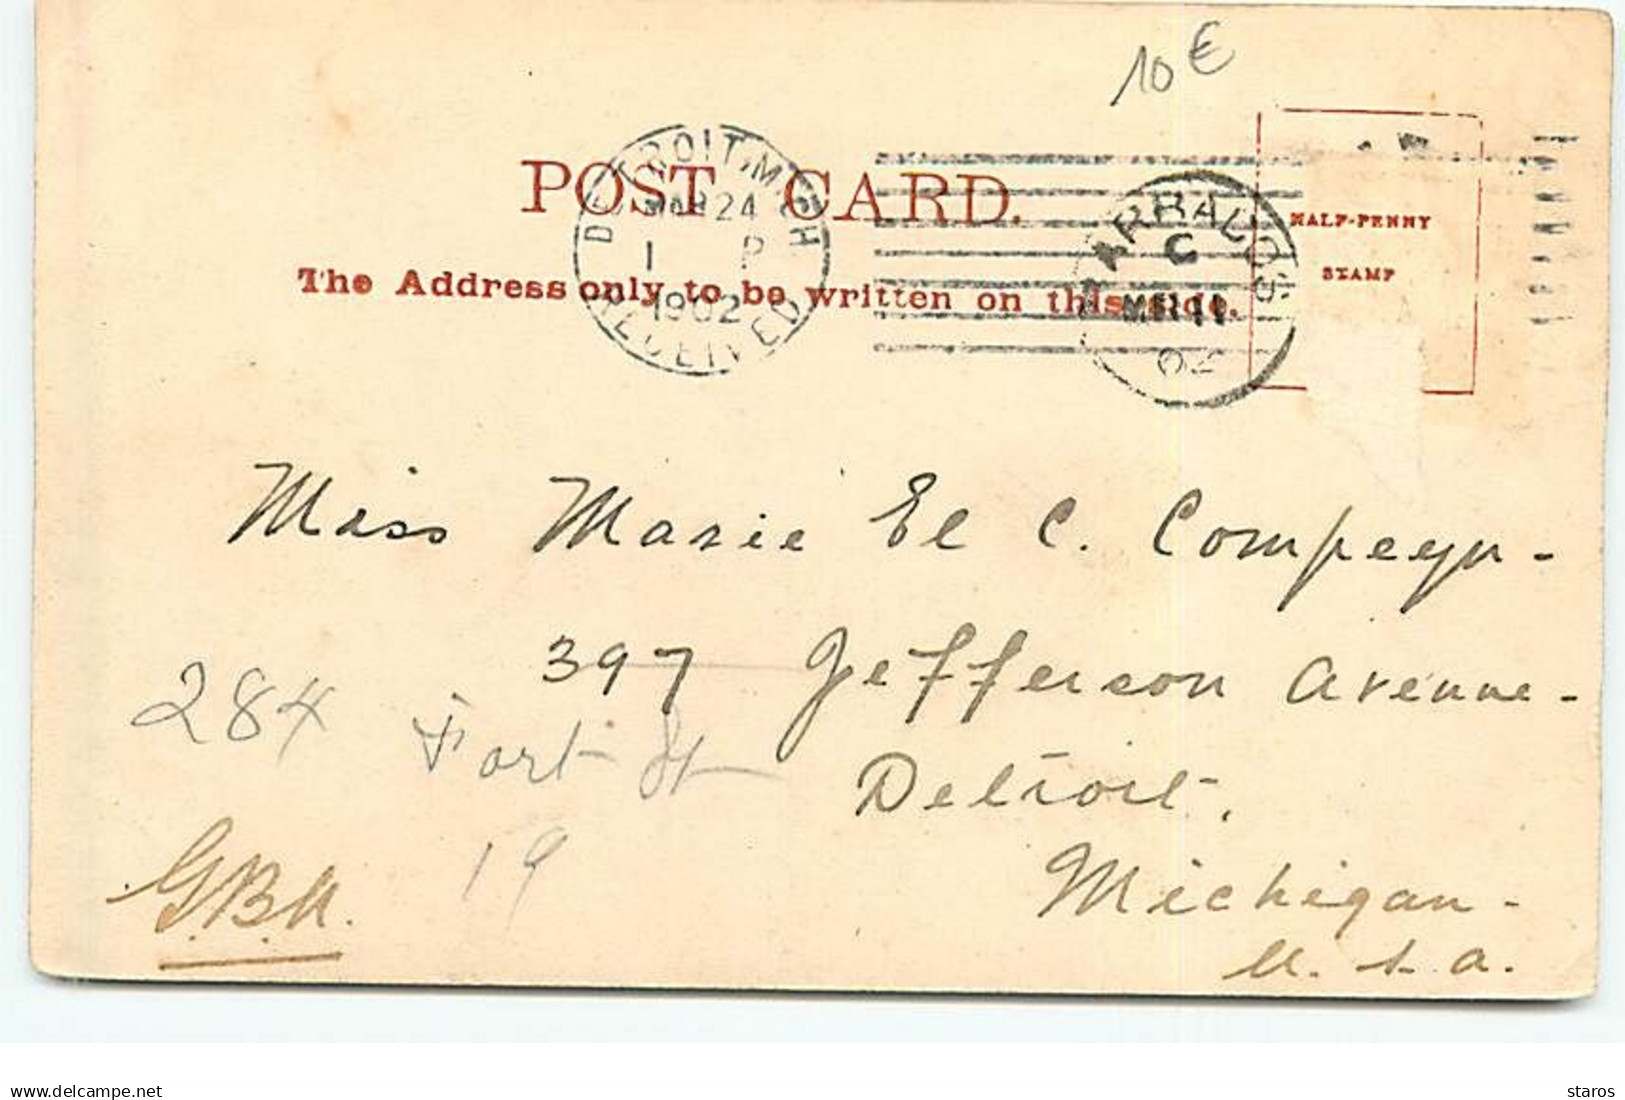 10 €
POST CARD.
The Address only to be written on this side.
DETROIT, MICH
MAR 24
1 P
1902
RECEIVED
BARBADOS
C
MR 11
02
HALF-PENNY
STAMP
Miss Marie El C. Compeyn -
397 Jefferson Avenue -
284 Fort St
Detroit,
19
G.B.H.
Michigan -
U. S. A.
www.delcampe.net
staros